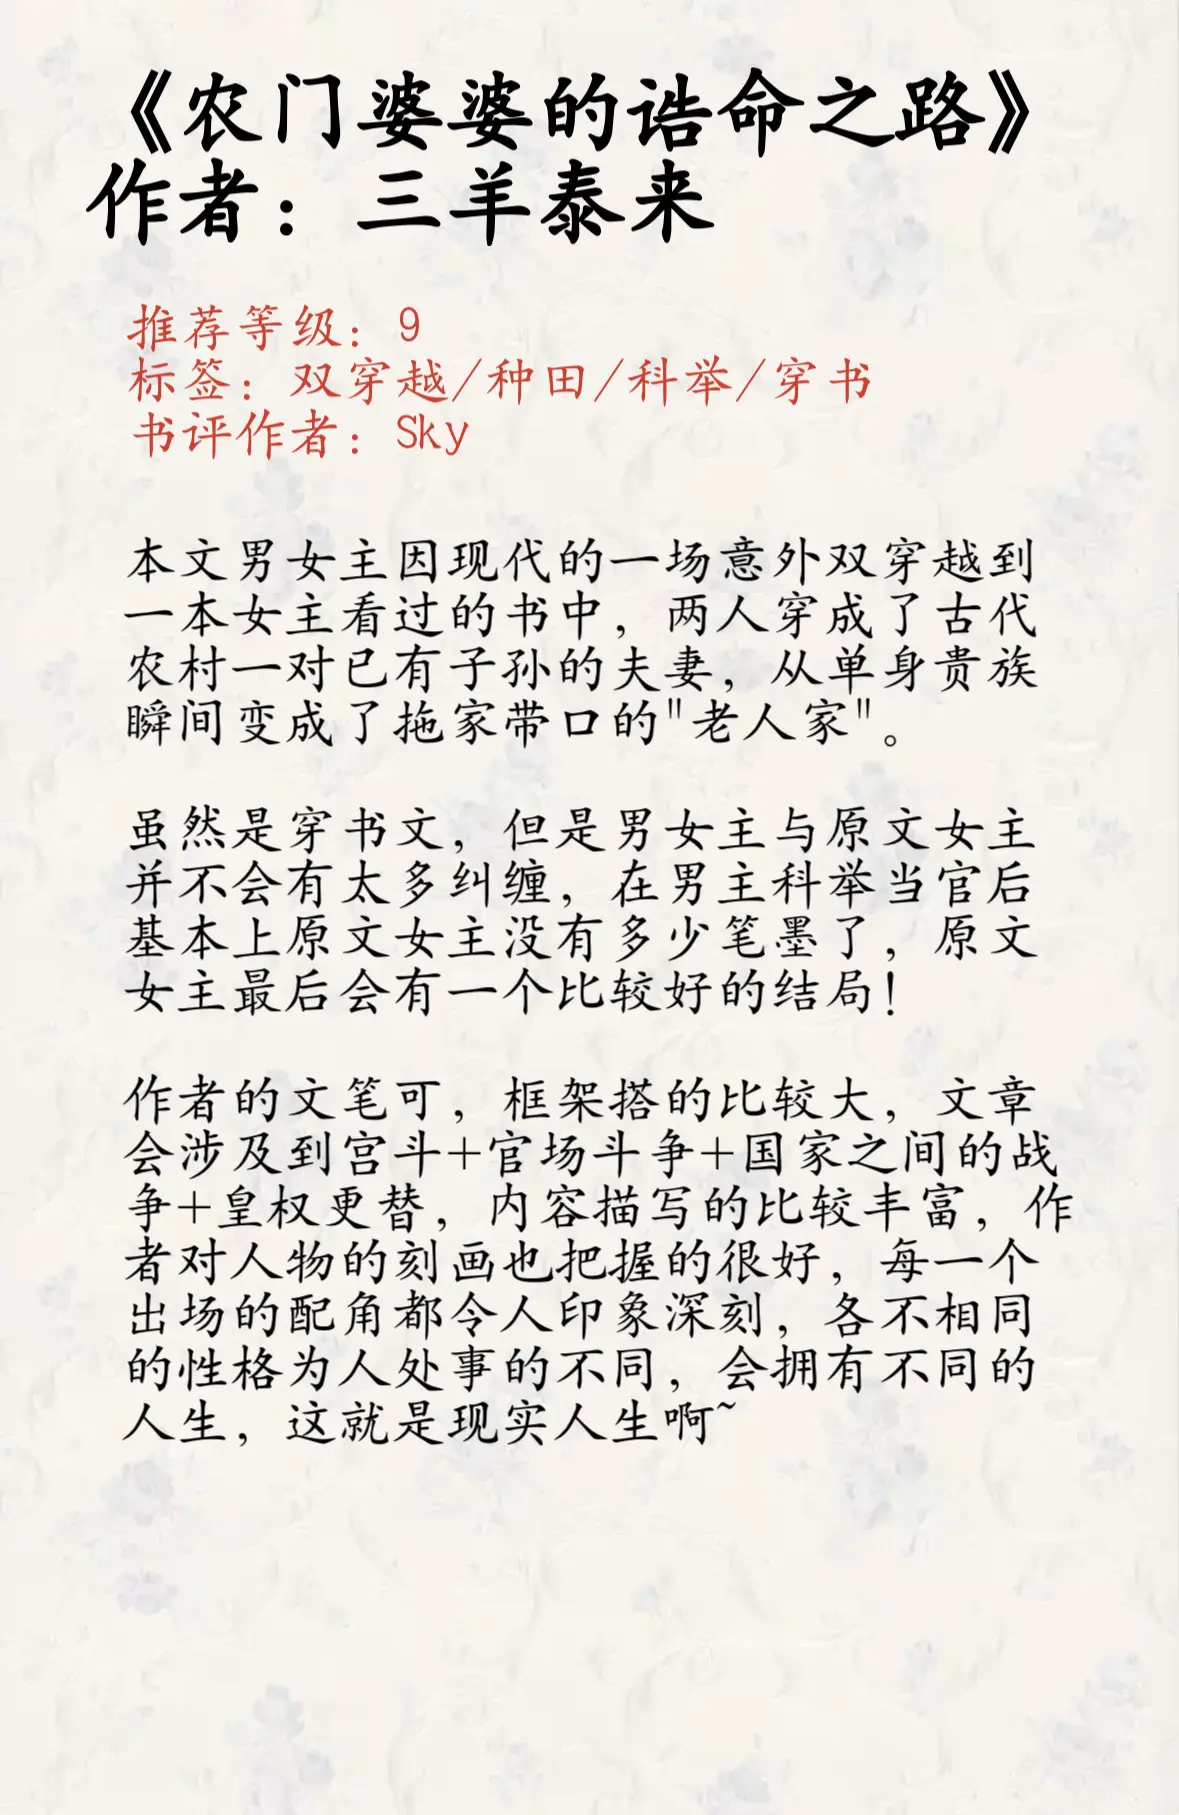 《农门婆婆的诰命之路》
作者：三羊泰来
推荐等级：9
标签：双穿越/种田/科举/穿书
书评作者：Sky
本文男女主因现代的一场意外双穿越到
一本女主看过的书中，两人穿成了古代
农村一对已有子孙的夫妻，从单身贵族
瞬间变成了拖家带口的"老人家"。
虽然是穿书文，但是男女主与原文女主
并不会有太多纠缠，在男主科举当官后
基本上原文女主没有多少笔墨了，原文
女主最后会有一个比较好的结局！
作者的文笔可，框架搭的比较大，文章
会涉及到宫斗+官场斗争+国家之间的战
争+皇权更替，内容描写的比较丰富，作
者对人物的刻画也把握的很好，每一个
出场的配角都令人印象深刻，各不相同
的性格为人处事的不同，会拥有不同的
人生，这就是现实人生啊~